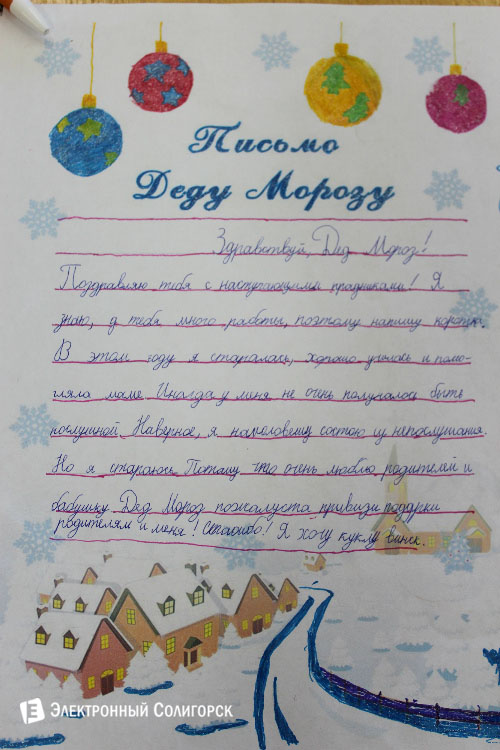 Письмо
Деду Морозу
Здравствуй, Дед Мороз!
Поздравляю тебя с наступающими праздниками! Я
знаю, у тебя много работы, поэтому напишу коротко.
В этом году я старалась, хорошо училась и помо-
гляла маме. Иногда у меня не очень получалось быть
послушной. Наверное, я наполовину состою из непослушания.
Но я стараюсь. Потому что очень люблю родителей и
бабушку. Дед Мороз пожалуста привизи подарки
родителям и меня! Спасибо! Я хочу куклу Винкс.
Электронный Солигорск